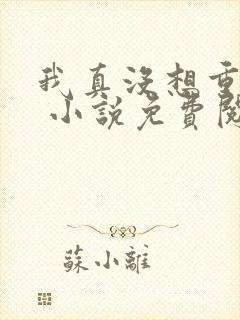 我真没想重
小說免費閱
蘇小離